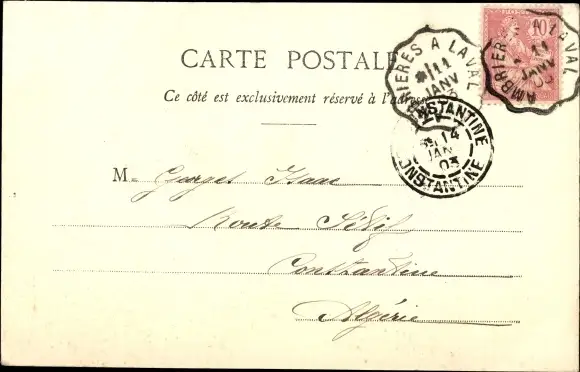 CARTE POSTALE
Ce côté est exclusivement réservé à l'adresse
10
AMBRIÈRES A LAVAL
11
JANV
03
AMBRIERES A LAVAL
11
JANV
03
CONSTANTINE
14
JAN
03
CONSTANTINE
M Georget Isaac
Route Sétif
Constantine
Algérie